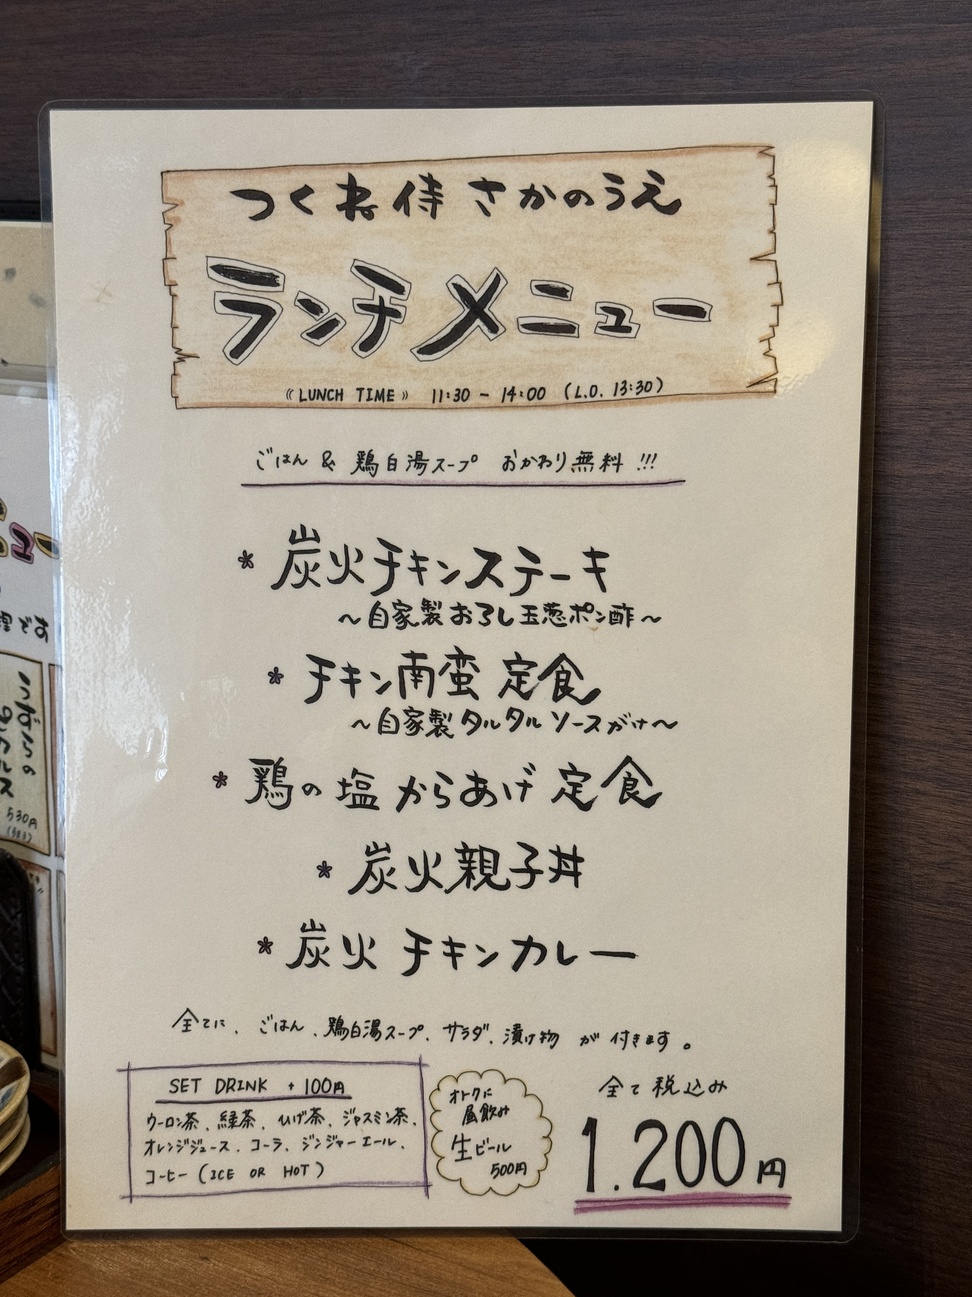 つくね侍 さかのうえ
ランチメニュー
《LUNCH TIME》 11:30 - 14:00 (L.O. 13:30)
ごはん & 鶏白湯スープ おかわり無料!!!
* 炭火チキンステーキ
～自家製おろし玉葱ポン酢～
* チキン南蛮 定食
～自家製タルタルソースがけ～
* 鶏の塩からあげ 定食
* 炭火親子丼
* 炭火 チキンカレー
全てに、ごはん、鶏白湯スープ、サラダ、漬け物 が 付きます。
SET DRINK + 100円
ウーロン茶、緑茶、ひげ茶、ジャスミン茶、
オレンジジュース、コーラ、ジンジャーエール、
コーヒー (ICE OR HOT)
オトクに
昼飲み
生ビール
500円
全て税込み
1.200円
ュー
です
530円